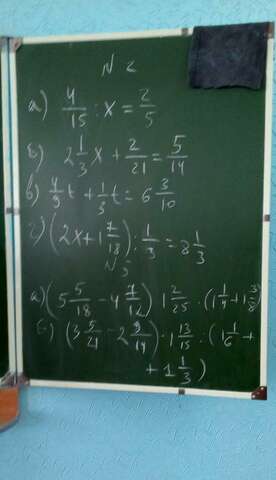 N 2
а) 4/15 : x = 2/5
б) 2 1/3 x + 2/21 = 5/14
в) 4/9 t + 1/3 t = 6 3/10
г) (2x + 1 7/18) : 1/3 = 8 1/3
N 3
а) (5 5/18 - 4 7/12) · 1 2/25 : (1 1/9 + 1 3/8)
б) (3 5/21 - 2 9/14) · 1 13/15 : (1 1/6 +
+ 1 1/3)